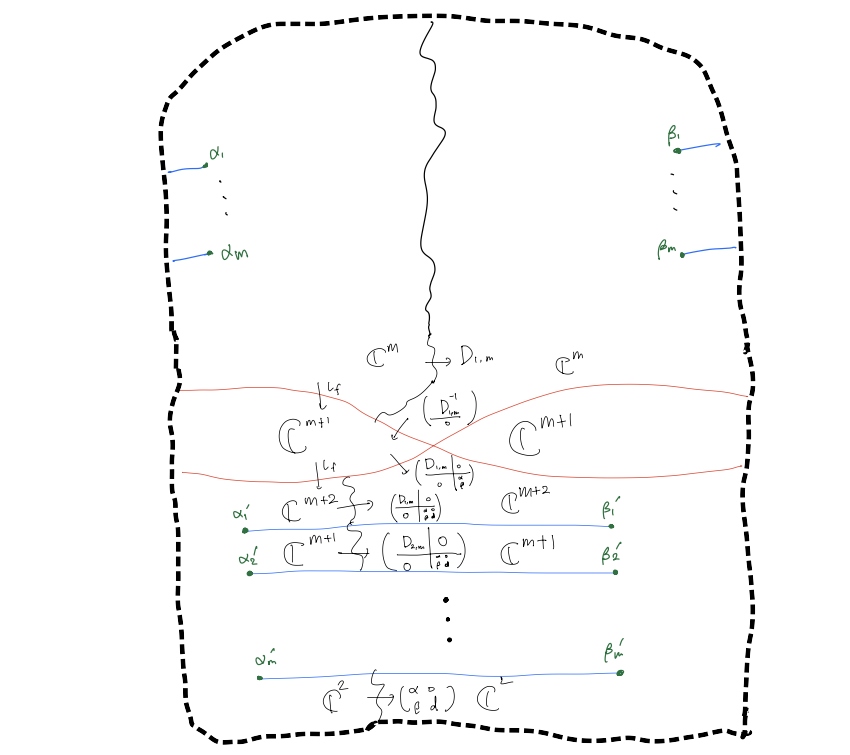 α₁ β₁
⋮ ⋮
αm βm
ℂᵐ → D₁,ₘ ℂᵐ
↓ ι_f
ℂᵐ⁺¹ (D₁,ₘ⁻¹ / 0) ℂᵐ⁺¹
↓ ι_f (D₁,ₘ | 0 / 0 | α ρ)
α₁′ ℂᵐ⁺² → (D₁,ₘ | 0 / 0 | α 0 ρ d) ℂᵐ⁺² β₁′
α₂′ ℂᵐ⁺¹ → (D₂,ₘ | 0 / 0 | α 0 ρ d) ℂᵐ⁺¹ β₂′
⋮
αm′ βm′
ℂ² → (α 0 ρ d) ℂ²